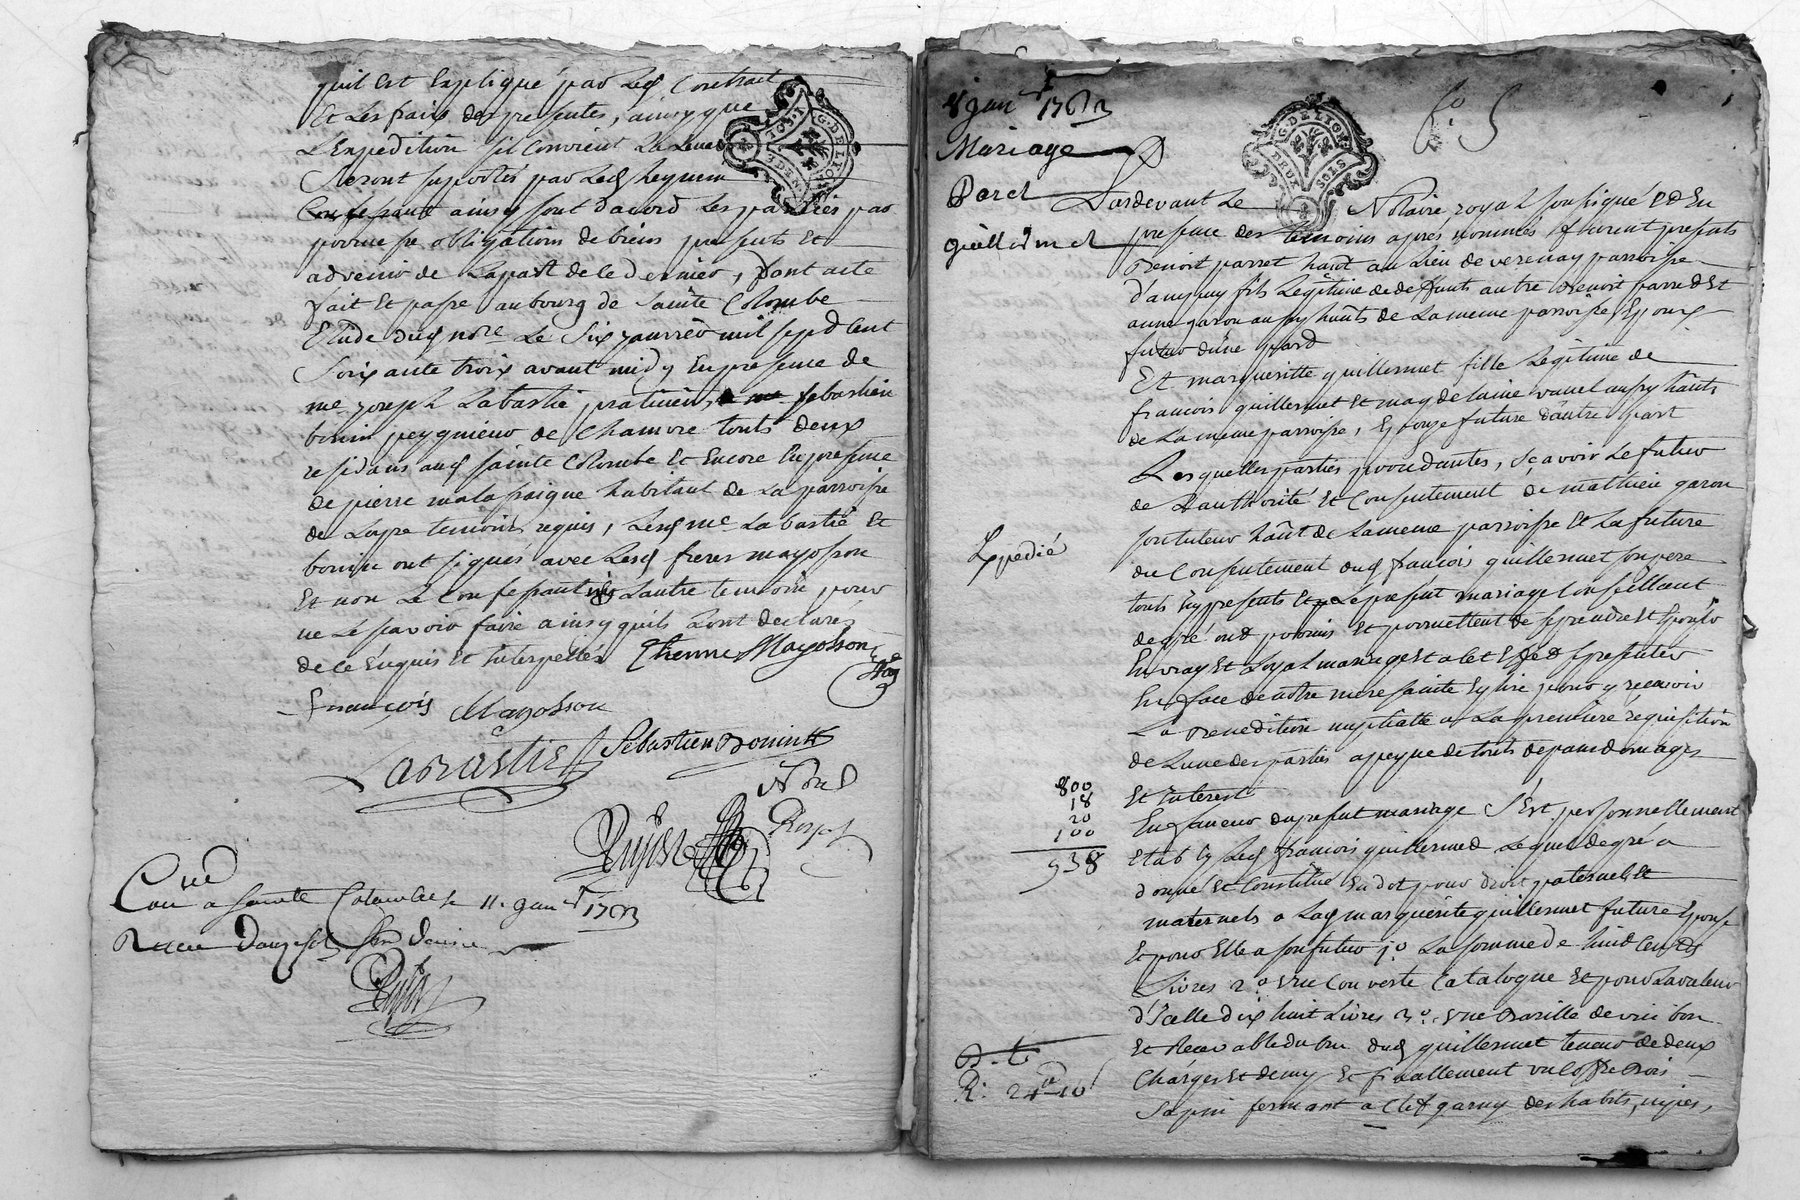 quil est Expliqué par Led Contract
Et Les frais des presentes, ainsy que
L'Expedition sil Convient La Lever
Seront suportés par Led
Confessant ainsy sont dacord Les parties par
obligations de biens presents Et
advenir de Lapart de ce dernier, Dont acte
fait Et passé au bourg de Sainte Colombe
Etude dud nore Le Six janvier mil sept Cent
Soixante trois avant midy En presence de
me joseph Labastie praticien, Sebastien
bonin peygnieur de Chanvre touts deux
residans aud sainte Colombe Et Encore En presence
de pierre habitant de La parroisse
de temoins requis, Lesd me Labastie Et
bonin ont signés avec Lesd freres mayosson
Et non Le Confessant Lautre temoin pour
ne Le scavoir faire ainsy quils Lont declarés
de ce Enquis Et Interpellés Ethienne Mayosson
François Mayosson
Labastie Sebastien Bonin
No.re
Royal
Coné
Con a Sainte Colombe le 11. janer 1763
Receu Douze sols Six Denier
8 janer 1763
fo. 5
G. DE LION
DEUX SOLS
Mariage
Paret
guillermet
Expedié
Pardevant Le Notaire royal soussigné Et En
presence des temoins apres nommés furent presents
Benoit parret hant au Lieu de verenay parroisse
d'ampuy fils Legitime de deffunts autre Benoit parret Et
anne garon aussy hants de La meme parroisse Epoux
futur dune part
Et margueritte guillermet fille Legitime de
francois guillermet Et magdelaine vanel aussy hants
de La meme parroisse, Epouze future dautre part
Lesquelles parties procedantes, Sçavoir Le futur
de Lauthorité Et Consentement de mathieu garon
son tuteur hant de La meme parroisse Et La future
du Consentement dud francois guillermet son pere
touts Icy presents Et Le present mariage Conseillant
de gré ont promis Et promettent de se prendre Et Epouser
En vray Et Loyal mariage Et a cet Effet se presenter
En face de notre mere sainte Eglise pour y recevoir
La Benediction nuptialle a La premiere requisition
de Lune des parties a peyne de touts depans domages
Et Interest
800
18
20
100
938
En faveur du present mariage S'est personnellement
Etably Led francois guillermet Lequel de gré a
donné Et Constitué En dot pour droit paternels Et
maternels a Lad marguerite guillermet future Epouse
Et pour Elle a son futur 1o. La somme de huit Cents
Livres 2o. Une Couverte Catalogne Et pour La valeur
d'Icelle dix huit Livres 3o. Une Barille de vin bon
Et Recevable du Cru dud guillermet teneur de deux
Charges Et demy Et finallement un Coffre Bois
Sapin fermant a Clef garny des habits, nipes,